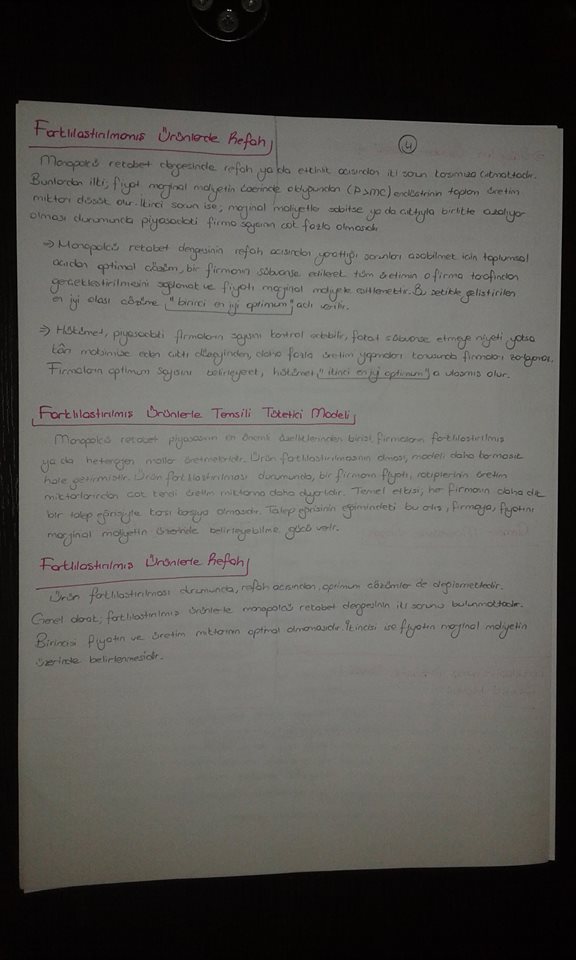 Farklılaştırılmamış Ürünlerde Refah
4
Monopolcü rekabet dengesinde refah ya da etkinlik açısından iki sorun karşımıza çıkmaktadır.
Bunlardan ilki; fiyat marjinal maliyetin üzerinde olduğundan (P>MC) endüstrinin toplam üretim
miktarı düşük olur. İkinci sorun ise; marjinal maliyetler sabitse ya da çıktıyla birlikte azalıyor
olması durumunda piyasadaki firma sayısının çok fazla olmasıdır.
→ Monopolcü rekabet dengesinin refah açısından yarattığı sorunları azaltmak için toplumsal
açıdan optimal çözüm, bir firmanın sübvanse edilerek tüm üretimin o firma tarafından
gerçekleştirilmesini sağlamak ve fiyatı marjinal maliyete eşitlemektir. Bu şekilde geliştirilen
en iyi olası çözüme "birinci en iyi optimum" adı verilir.
→ Hükümet, piyasadaki firmaların sayısını kontrol edebilir, fakat sübvanse etmeye niyeti yoksa
kârı maksimize eden çıktı düzeyinden, daha fazla üretim yapmaları konusunda firmaları zorlayamaz.
Firmaların optimum sayısını belirleyerek, hükümet, "ikinci en iyi optimum"a ulaşmış olur.
Farklılaştırılmış Ürünlerle Temsili Tüketici Modeli
Monopolcü rekabet piyasasının en önemli özelliklerinden birisi, firmaların farklılaştırılmış
ya da heterojen mallar üretmeleridir. Ürün farklılaştırılmasının olması, modeli daha karmaşık
hale getirmiştir. Ürün farklılaştırılması durumunda, bir firmanın fiyatı, rakiplerinin üretim
miktarlarından çok kendi üretim miktarına daha duyarlıdır. Temel etkisi, her firmanın daha dik
bir talep eğrisiyle karşı karşıya olmasıdır. Talep eğrisinin eğimindeki bu artış, firmaya, fiyatını
marjinal maliyetin üzerinde belirleyebilme gücü verir.
Farklılaştırılmış Ürünlerle Refah
Ürün farklılaştırılması durumunda, refah açısından, optimum çözümler de değişmektedir.
Genel olarak, farklılaştırılmış ürünlerle monopolcü rekabet dengesinin iki sorunu bulunmaktadır.
Birincisi fiyatın ve üretim miktarının optimal olmamasıdır. İkincisi ise fiyatın marjinal maliyetin
üzerinde belirlenmesidir.